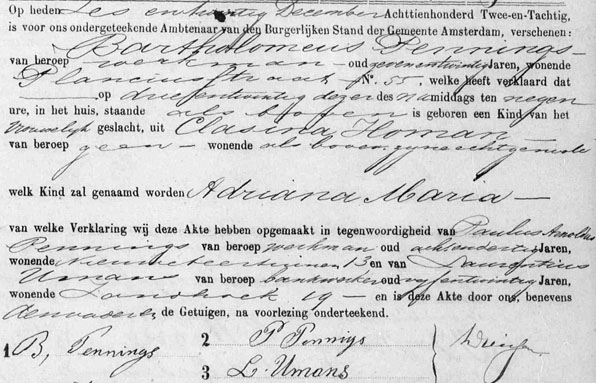 Op heden Zes en twintig December Achttienhonderd Twee-en-Tachtig,
is voor ons ondergeteekende Ambtenaar van den Burgerlijken Stand der Gemeente Amsterdam, verschenen:
Bartholomeus Pennings
van beroep werkman oud zevenentwintig Jaren, wonende
Planciusstraat No. 55, welke heeft verklaard dat
op drieentwintig dezer des namiddags ten negen
ure, in het huis, staande als boven is geboren een Kind van het
Vrouwelijk geslacht, uit Clasina Homan
van beroep geen wonende als boven, zyne echtgenoote
welk Kind zal genaamd worden Adriana Maria
van welke Verklaring wij deze Akte hebben opgemaakt in tegenwoordigheid van Paulus Arnoldus
Pennings van beroep werkman oud achtendertig Jaren,
wonende 13 en van Laurentius
Umans van beroep bankwerker oud vyfentwintig Jaren,
wonende Zandhoek 19 en is deze Akte door ons, benevens
den vader en de Getuigen, na voorlezing onderteekend.
1 B, Pennings 2 P Pennigs
3 L. Umans